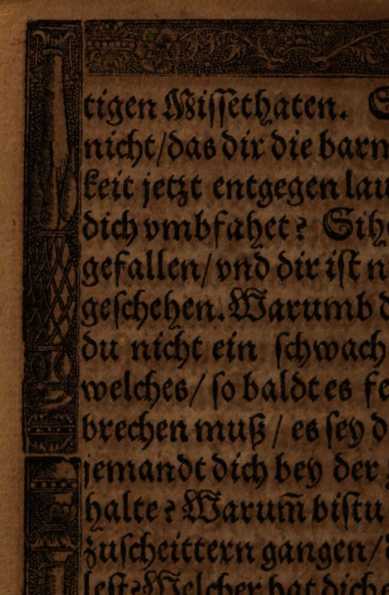 tigen Missethaten. S
nicht/das dir die barm
keit jetzt entgegen lau
dich vmbfahet? Sihe
gefallen/vnd dir ist n
geschehen. Warumb d
du nicht ein schwach
welches/ so baldt es fe
brechen muß/ es sey d
jemandt dich bey der
halte? Warum̄ bistu
zuscheittern gangen/
lest? Welcher hat dich